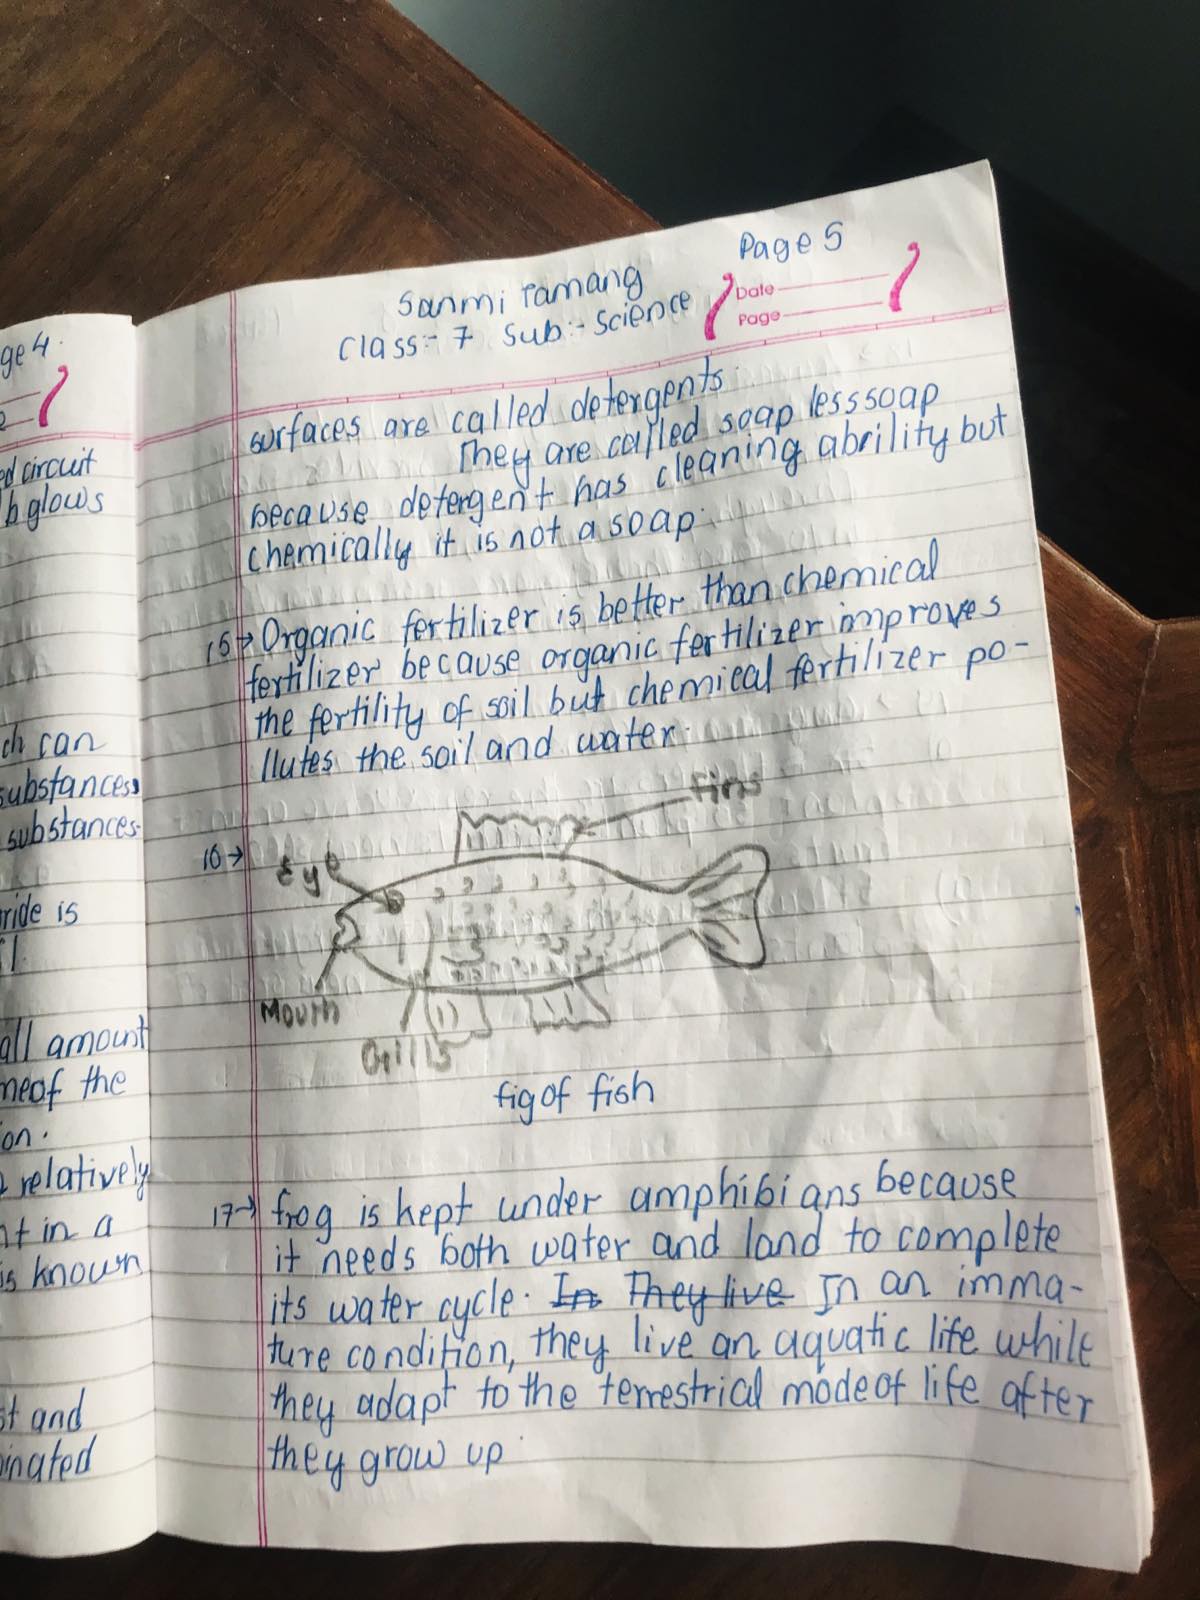 ge 4.
e
ed circuit
b glows
ch can
substances
substances.
ride is
all amount
neof the
on.
relatively
nt in a
is known
st and
inated
Page 5
Sanmi Tamang
Date
Class:- 7 Sub:- Science
Page
surfaces are called detergents.
They are called soap lesssoap
because detergent has cleaning abrility but
chemically it is not a soap.
15→ Organic fertilizer is better than chemical
fertilizer because organic fertilizer improves
the fertility of soil but chemical fertilizer po-
llutes the soil and water.
fins
16→
Eye
Mouth
Gills
fig of fish
17→ frog is kept under amphibians because
it needs both water and land to complete
its water cycle. In They live In an imma-
ture condition, they live an aquatic life while
they adapt to the terrestrial mode of life after
they grow up.